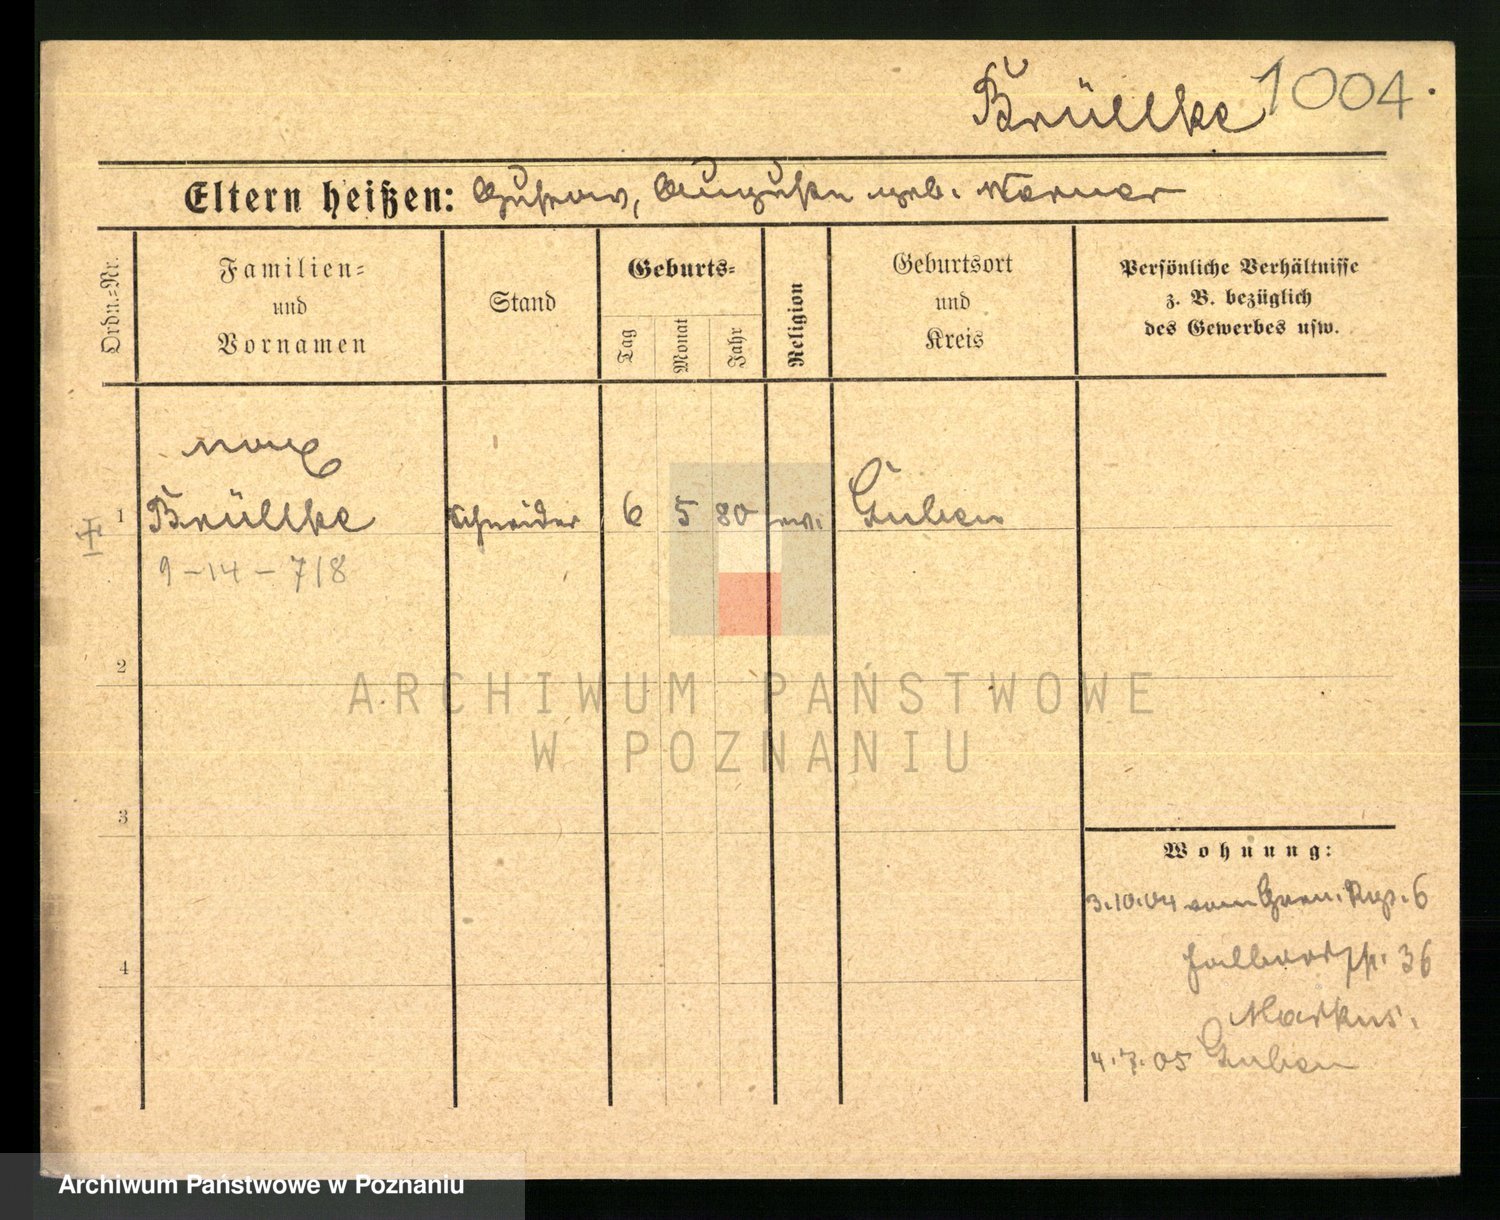 Brüllke 1004.
Eltern heißen: Gustav, Auguste geb. Werner
Ordn.=Nr.
Familien=
und
Vornamen
Stand
Geburts=
Tag
Monat
Jahr
Religion
Geburtsort
und
Kreis
Persönliche Verhältnisse
z. B. bezüglich
des Gewerbes usw.
Max
1 Brüllke Schneider 6 5 80 ev. Guben
9-14-718
2
ARCHIWUM PAŃSTWOWE
W POZNANIU
3
Wohnung:
3.10.04 vom Gren. Rgt. 6
4
Halbdorfstr. 36
Markus.
4.7.05 Guben
Archiwum Państwowe w Poznaniu